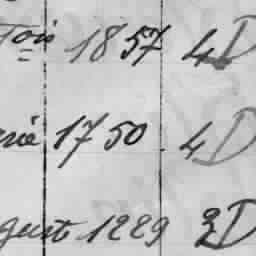 Toii 1857 4D
rié 1750 4D
gusti 1229 2D